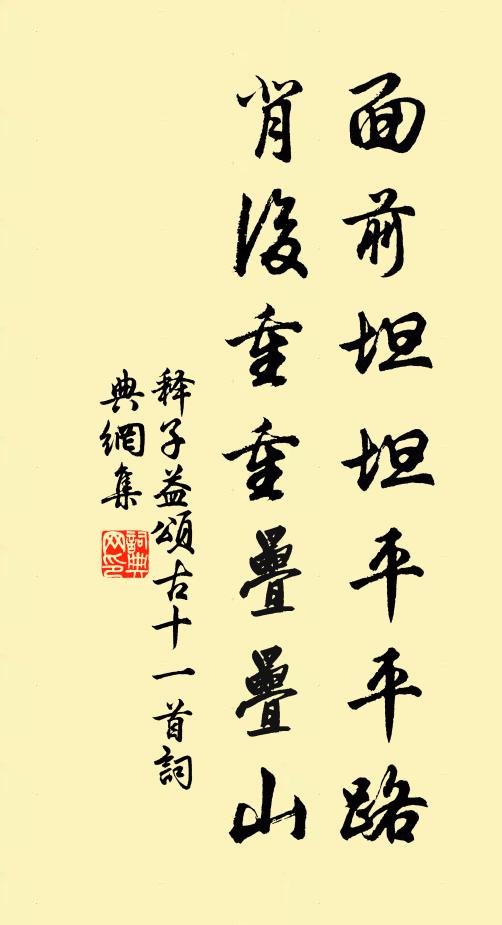 面前坦坦平平路
背後重重疊疊山
释子益頌古十一首詞
典網集
詞典网印